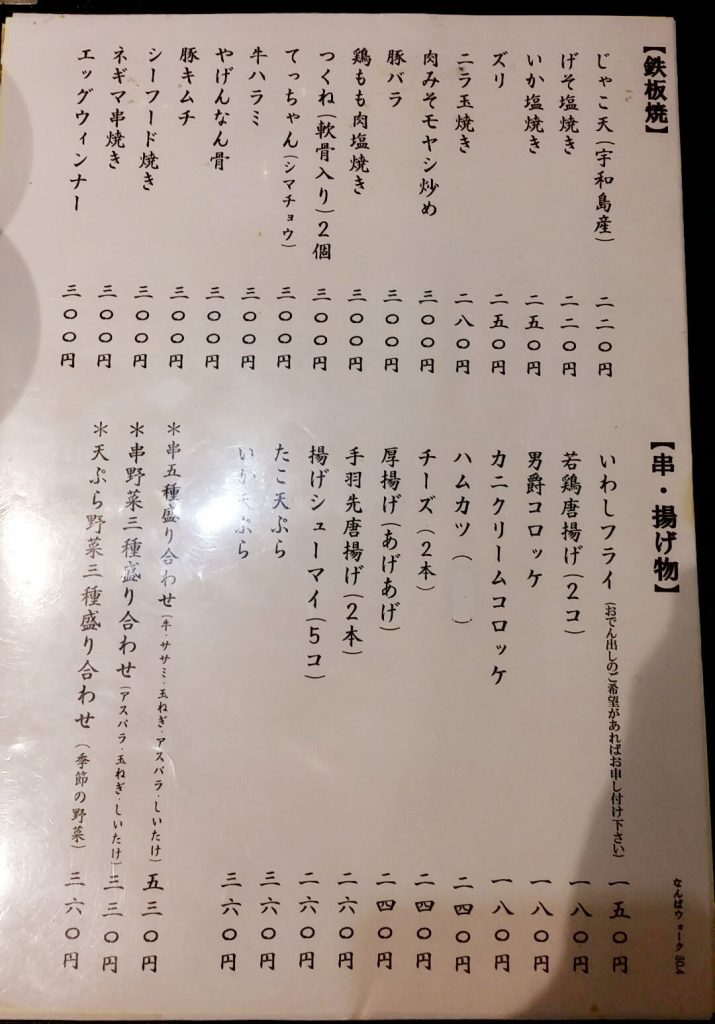 【鉄板焼】
じゃこ天(宇和島産) 二二〇円
げそ塩焼き 二二〇円
いか塩焼き 二五〇円
ズリ 二五〇円
ニラ玉焼き 二八〇円
肉みそモヤシ炒め 三〇〇円
豚バラ 三〇〇円
鶏もも肉塩焼き 三〇〇円
つくね(軟骨入り)2個 三〇〇円
てっちゃん(シマチョウ) 三〇〇円
牛ハラミ 三〇〇円
やげんなん骨 三〇〇円
豚キムチ 三〇〇円
シーフード焼き 三〇〇円
ネギマ串焼き 三〇〇円
エッグウィンナー 三〇〇円
【串・揚げ物】
なんばウォーク 30.4
いわしフライ(おでん出しのご希望があればお申し付け下さい) 一五〇円
若鶏唐揚げ(2コ) 一八〇円
男爵コロッケ 一八〇円
カニクリームコロッケ 一八〇円
ハムカツ( ) 二四〇円
チーズ(2本) 二四〇円
厚揚げ(あげあげ) 二四〇円
手羽先唐揚げ(2本) 二六〇円
揚げシューマイ(5コ) 二六〇円
たこ天ぷら 三六〇円
いか天ぷら 三六〇円
＊串五種盛り合わせ(牛・ササミ・玉ねぎ・アスパラ・しいたけ) 五三〇円
＊串野菜三種盛り合わせ(アスパラ・玉ねぎ・しいたけ) 三三〇円
＊天ぷら野菜三種盛り合わせ(季節の野菜) 三六〇円